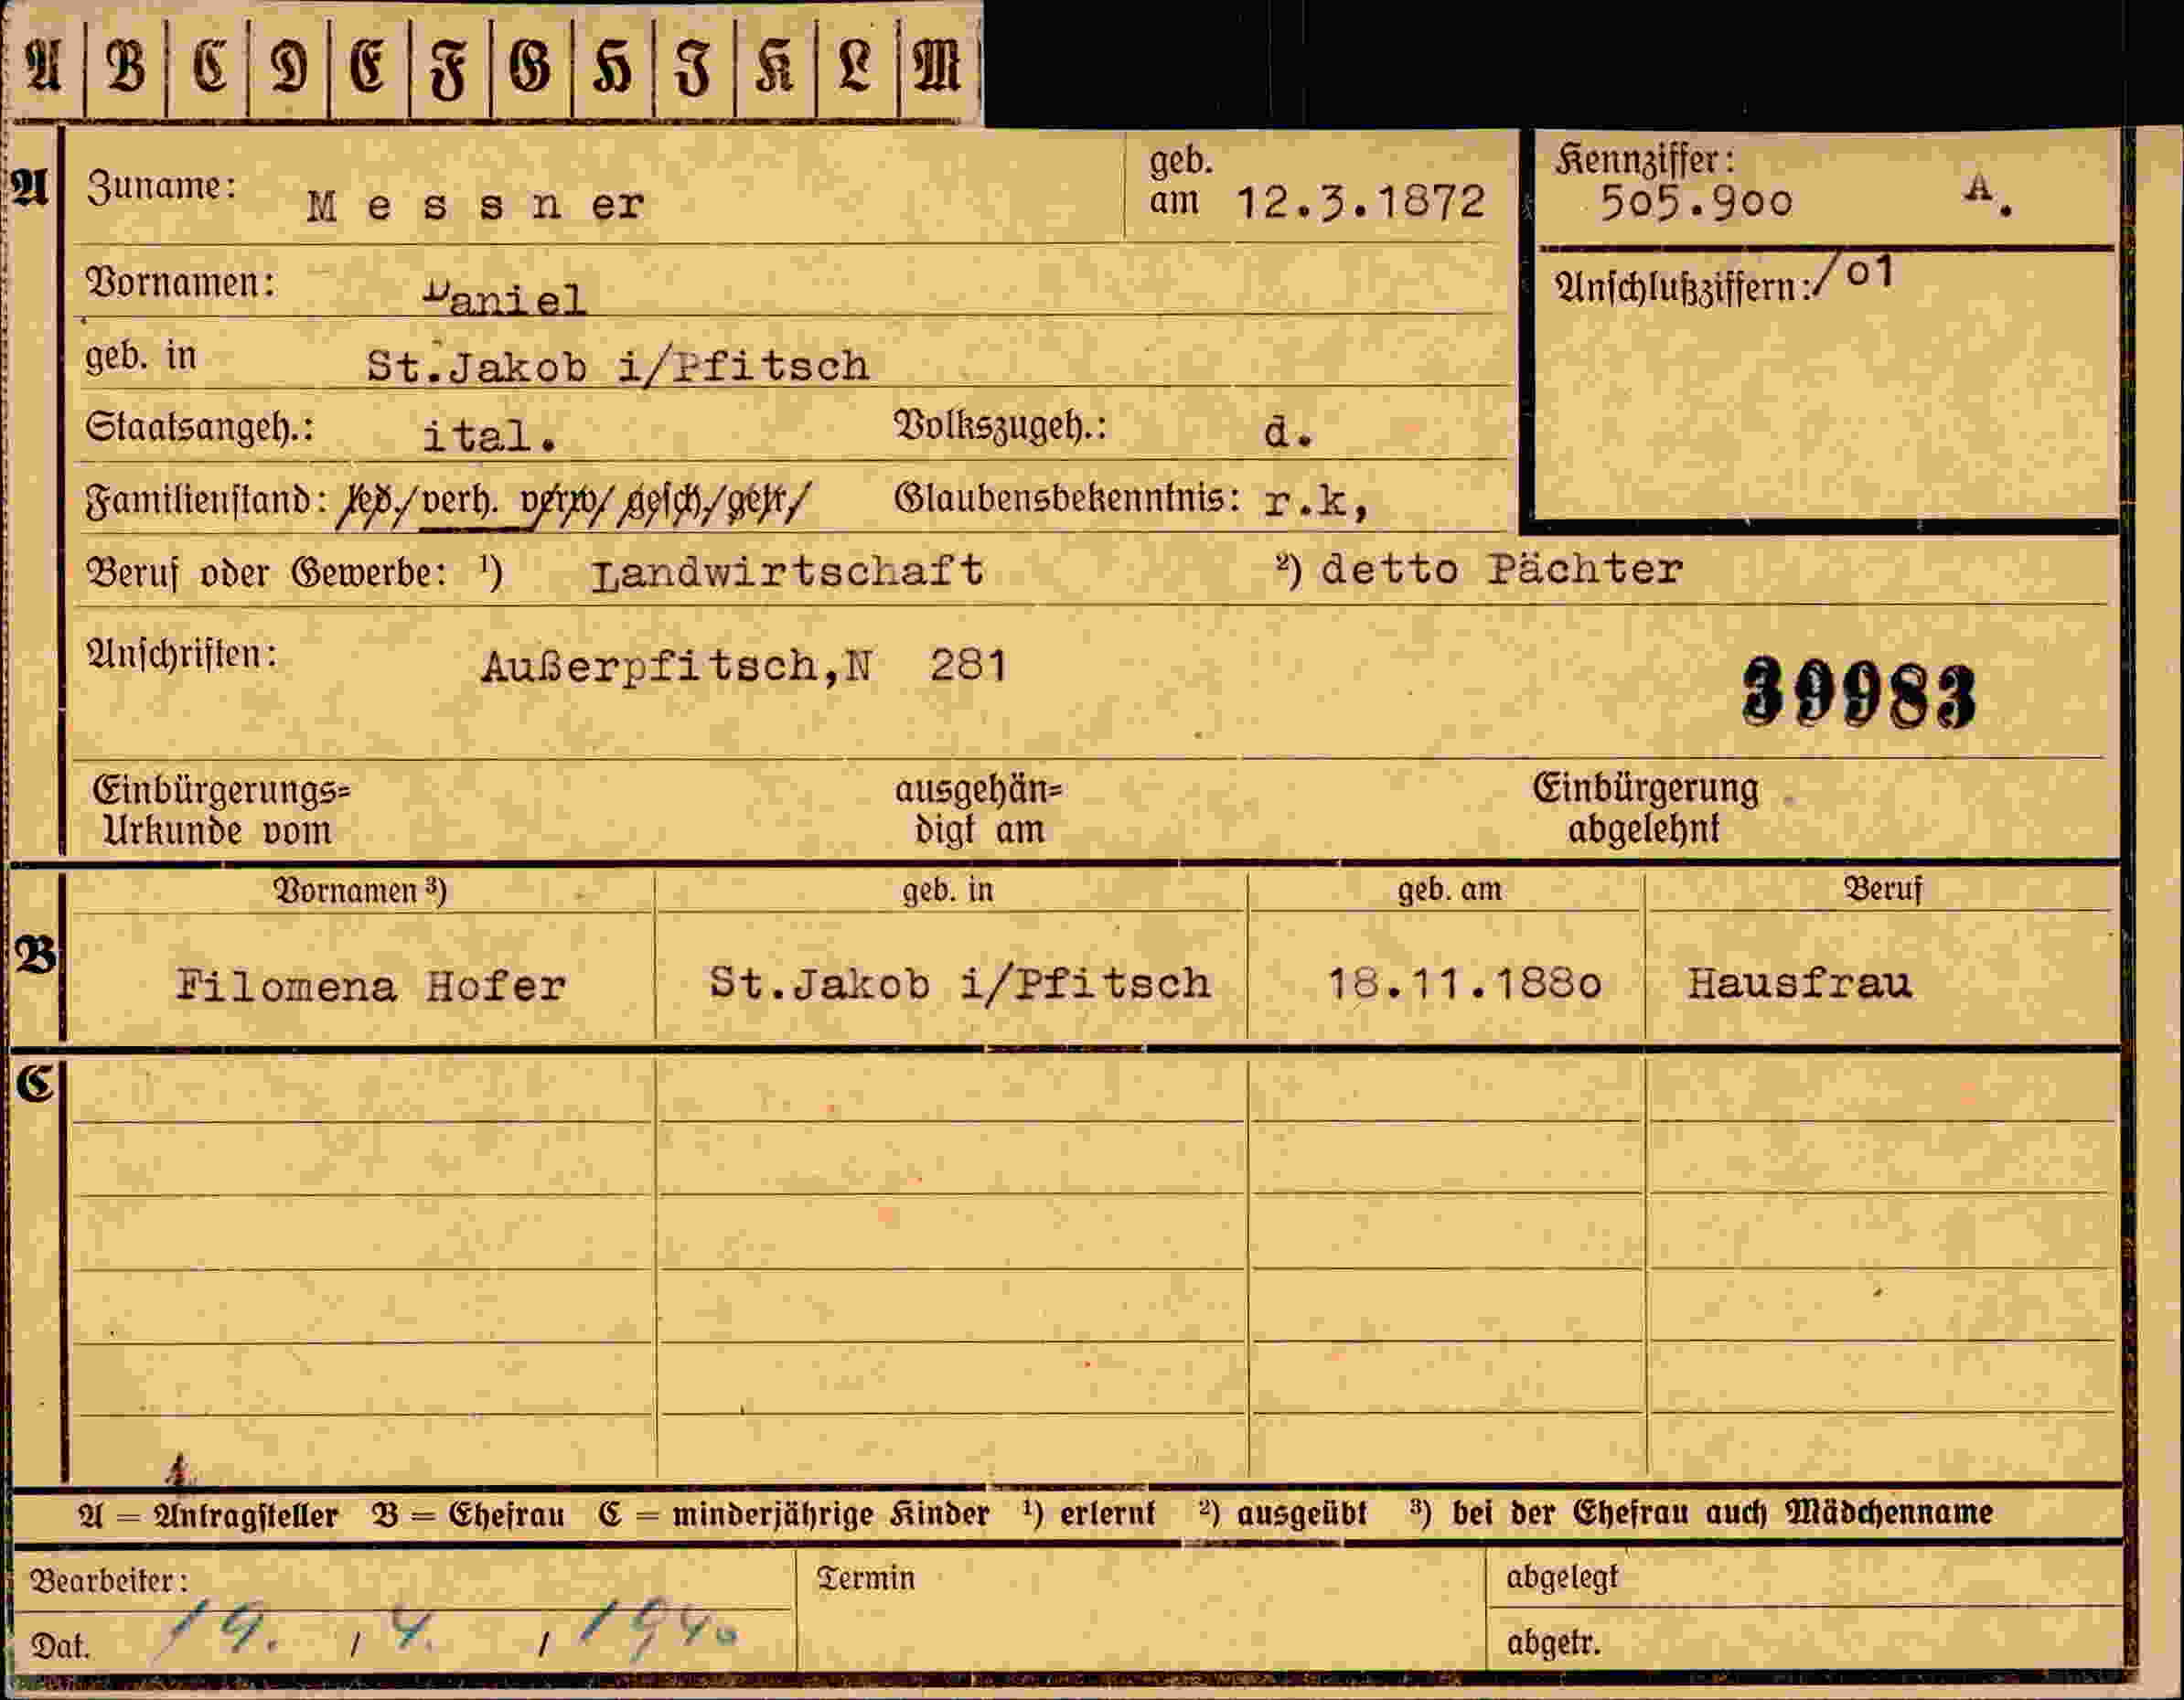 A B C D E F G H I K L M
A
Zuname: Messner
geb. am 12.3.1872
Kennziffer: 505.900 A.
Vornamen: Daniel
Anschlußziffern: /01
geb. in St.Jakob i/Pfitsch
Staatsangeh.: ital. Volkszugeh.: d.
Familienstand: led./verh. verw/gesch/getr/ Glaubensbekenntnis: r.k,
Beruf oder Gewerbe: 1) Landwirtschaft 2) detto Pächter
Anschriften: Außerpfitsch,N 281
39983
Einbürgerungs=
Urkunde vom
ausgehän=
digt am
Einbürgerung
abgelehnt
B
Vornamen 3) geb. in geb. am Beruf
Filomena Hofer St.Jakob i/Pfitsch 18.11.1880 Hausfrau
C
A = Antragsteller B = Ehefrau C = minderjährige Kinder 1) erlernt 2) ausgeübt 3) bei der Ehefrau auch Mädchenname
Bearbeiter: Termin abgelegt
Dat. 19. / 4. / 1940 abgetr.